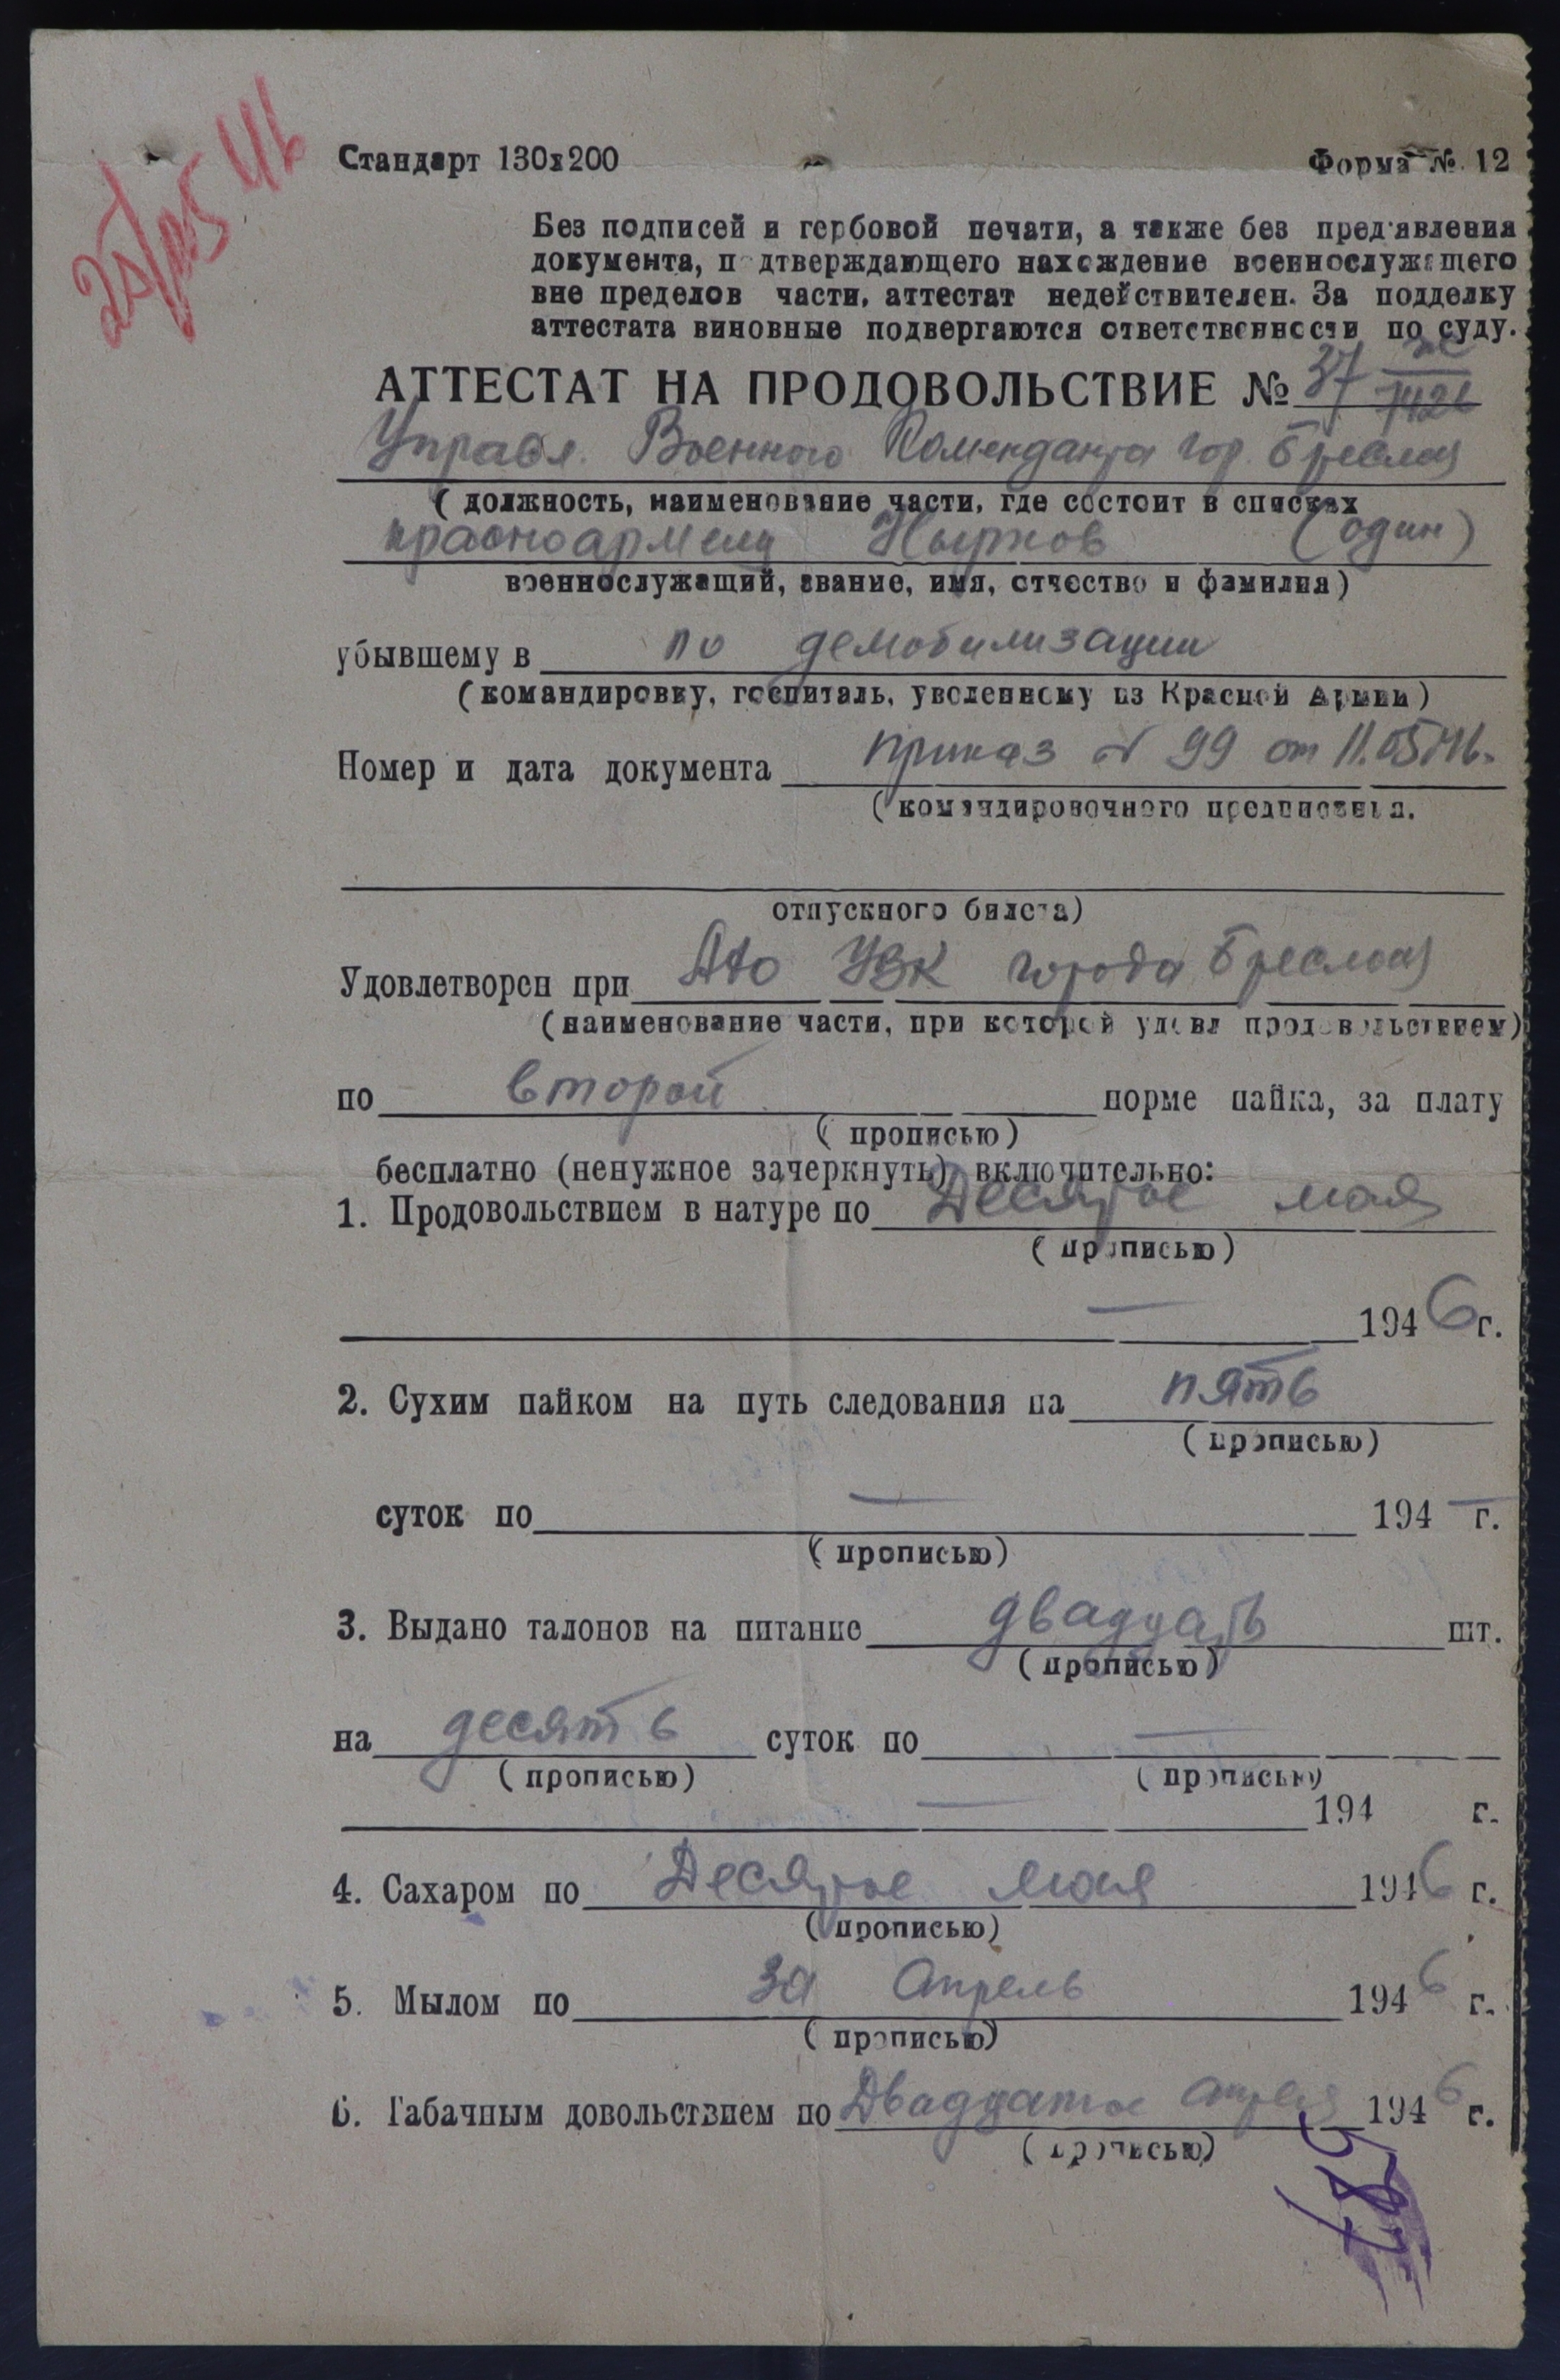 25/05 46
Стандарт 130х200 Форма № 12
Без подписей и гербовой печати, а также без пред'явления
документа, п дтверждающего нахождение военнослужащего
вне пределов части, аттестат недействителен. За подделку
аттестата виновные подвергаются ответственности по суду.
АТТЕСТАТ НА ПРОДОВОЛЬСТВИЕ № 37
Управл. Военного Коменданта гор. Бреслау
( должность, наименование части, где состоит в списках
красноармеец (один)
военнослужащий, звание, имя, отчество и фамилия)
убывшему в по демобилизации
(командировку, госпиталь, уволенному из Красной Армии)
Номер и дата документа приказ № 99 от 11.05.46.
( командировочного предписания.
отпускного билета)
Удовлетворен при УВК города Бреслау
(наименование части, при которой удовл продовольствием)
по второй норме пайка, за плату
( прописью)
бесплатно (ненужное зачеркнуть) включительно:
1. Продовольствием в натуре по Десятое мая
( прописью)
— 194 6 г.
2. Сухим пайком на путь следования на пять
( прописью)
суток по — 194 — г.
( прописью)
3. Выдано талонов на питание двадцать шт.
( прописью)
на десять суток по —
( прописью) ( прописью)
— 194 г.
4. Сахаром по Десятое мая 194 6 г.
( прописью)
5. Мылом по за Апрель 194 6 г.
( прописью)
6. Табачным довольствием по Двадцатое апреля 194 6 г.
( прописью)